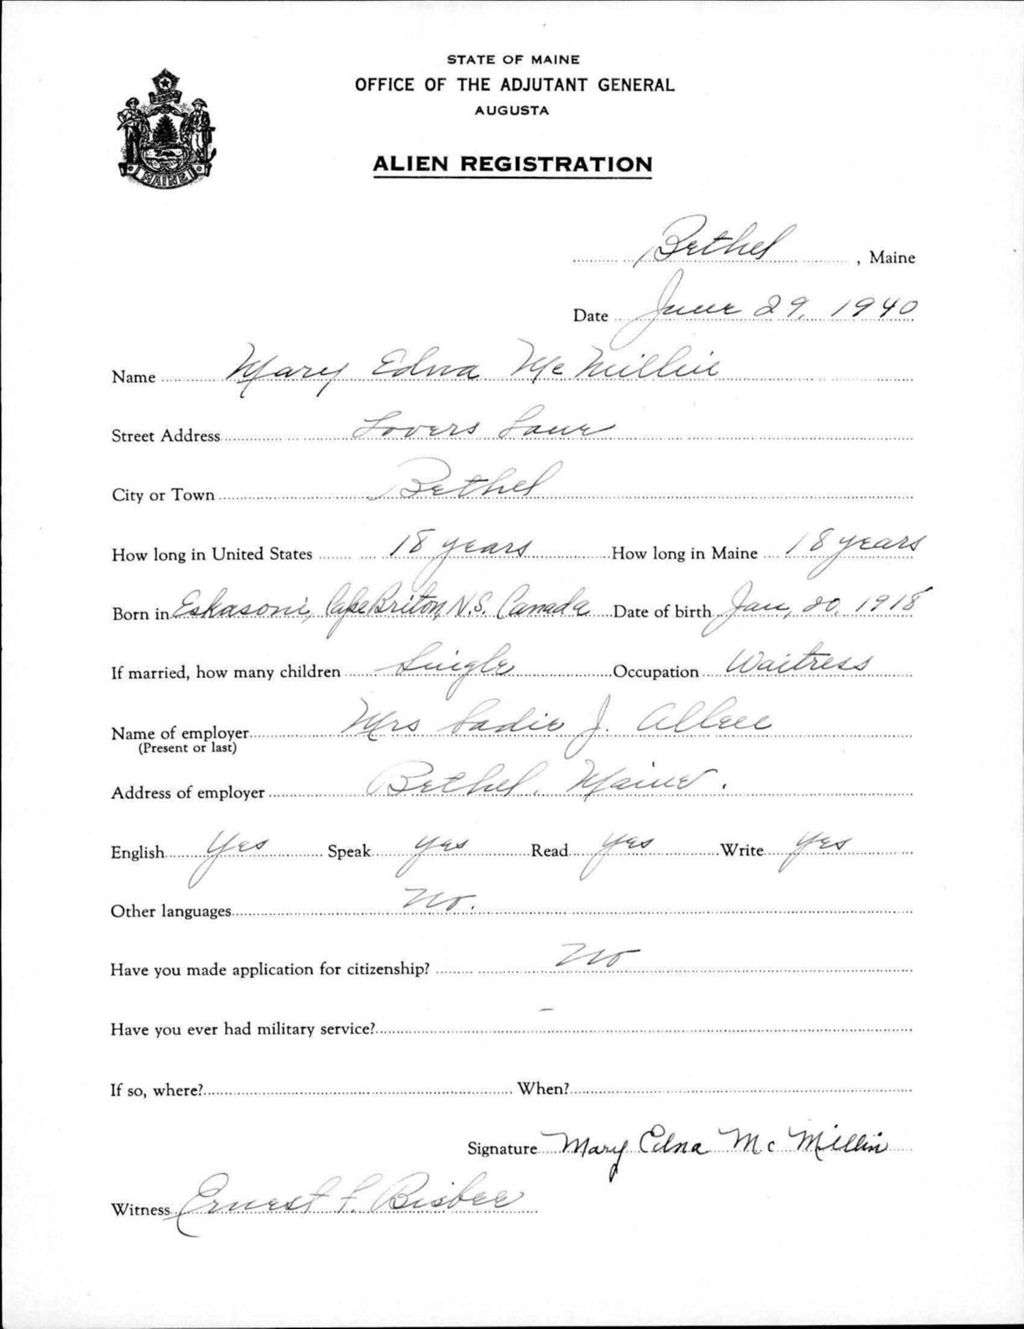 STATE OF MAINE
OFFICE OF THE ADJUTANT GENERAL
AUGUSTA
MAINE
ALIEN REGISTRATION
Bethel, Maine
Date June 29, 1940
Name Mary Edna McMillin
Street Address Lovers Lane
City or Town Bethel
How long in United States 18 years How long in Maine 18 years
Born in Eskasoni, Cape Briton, N.S. Canada Date of birth Jan, 20, 1918
If married, how many children Single Occupation Waitress
Name of employer Mrs Sadie J. Allen
(Present or last)
Address of employer Bethel, Maine.
English Yes Speak yes Read yes Write yes
Other languages No.
Have you made application for citizenship? No
Have you ever had military service? -
If so, where? When?
Signature Mary Edna McMillin
Witness Ernest F. Bisbee